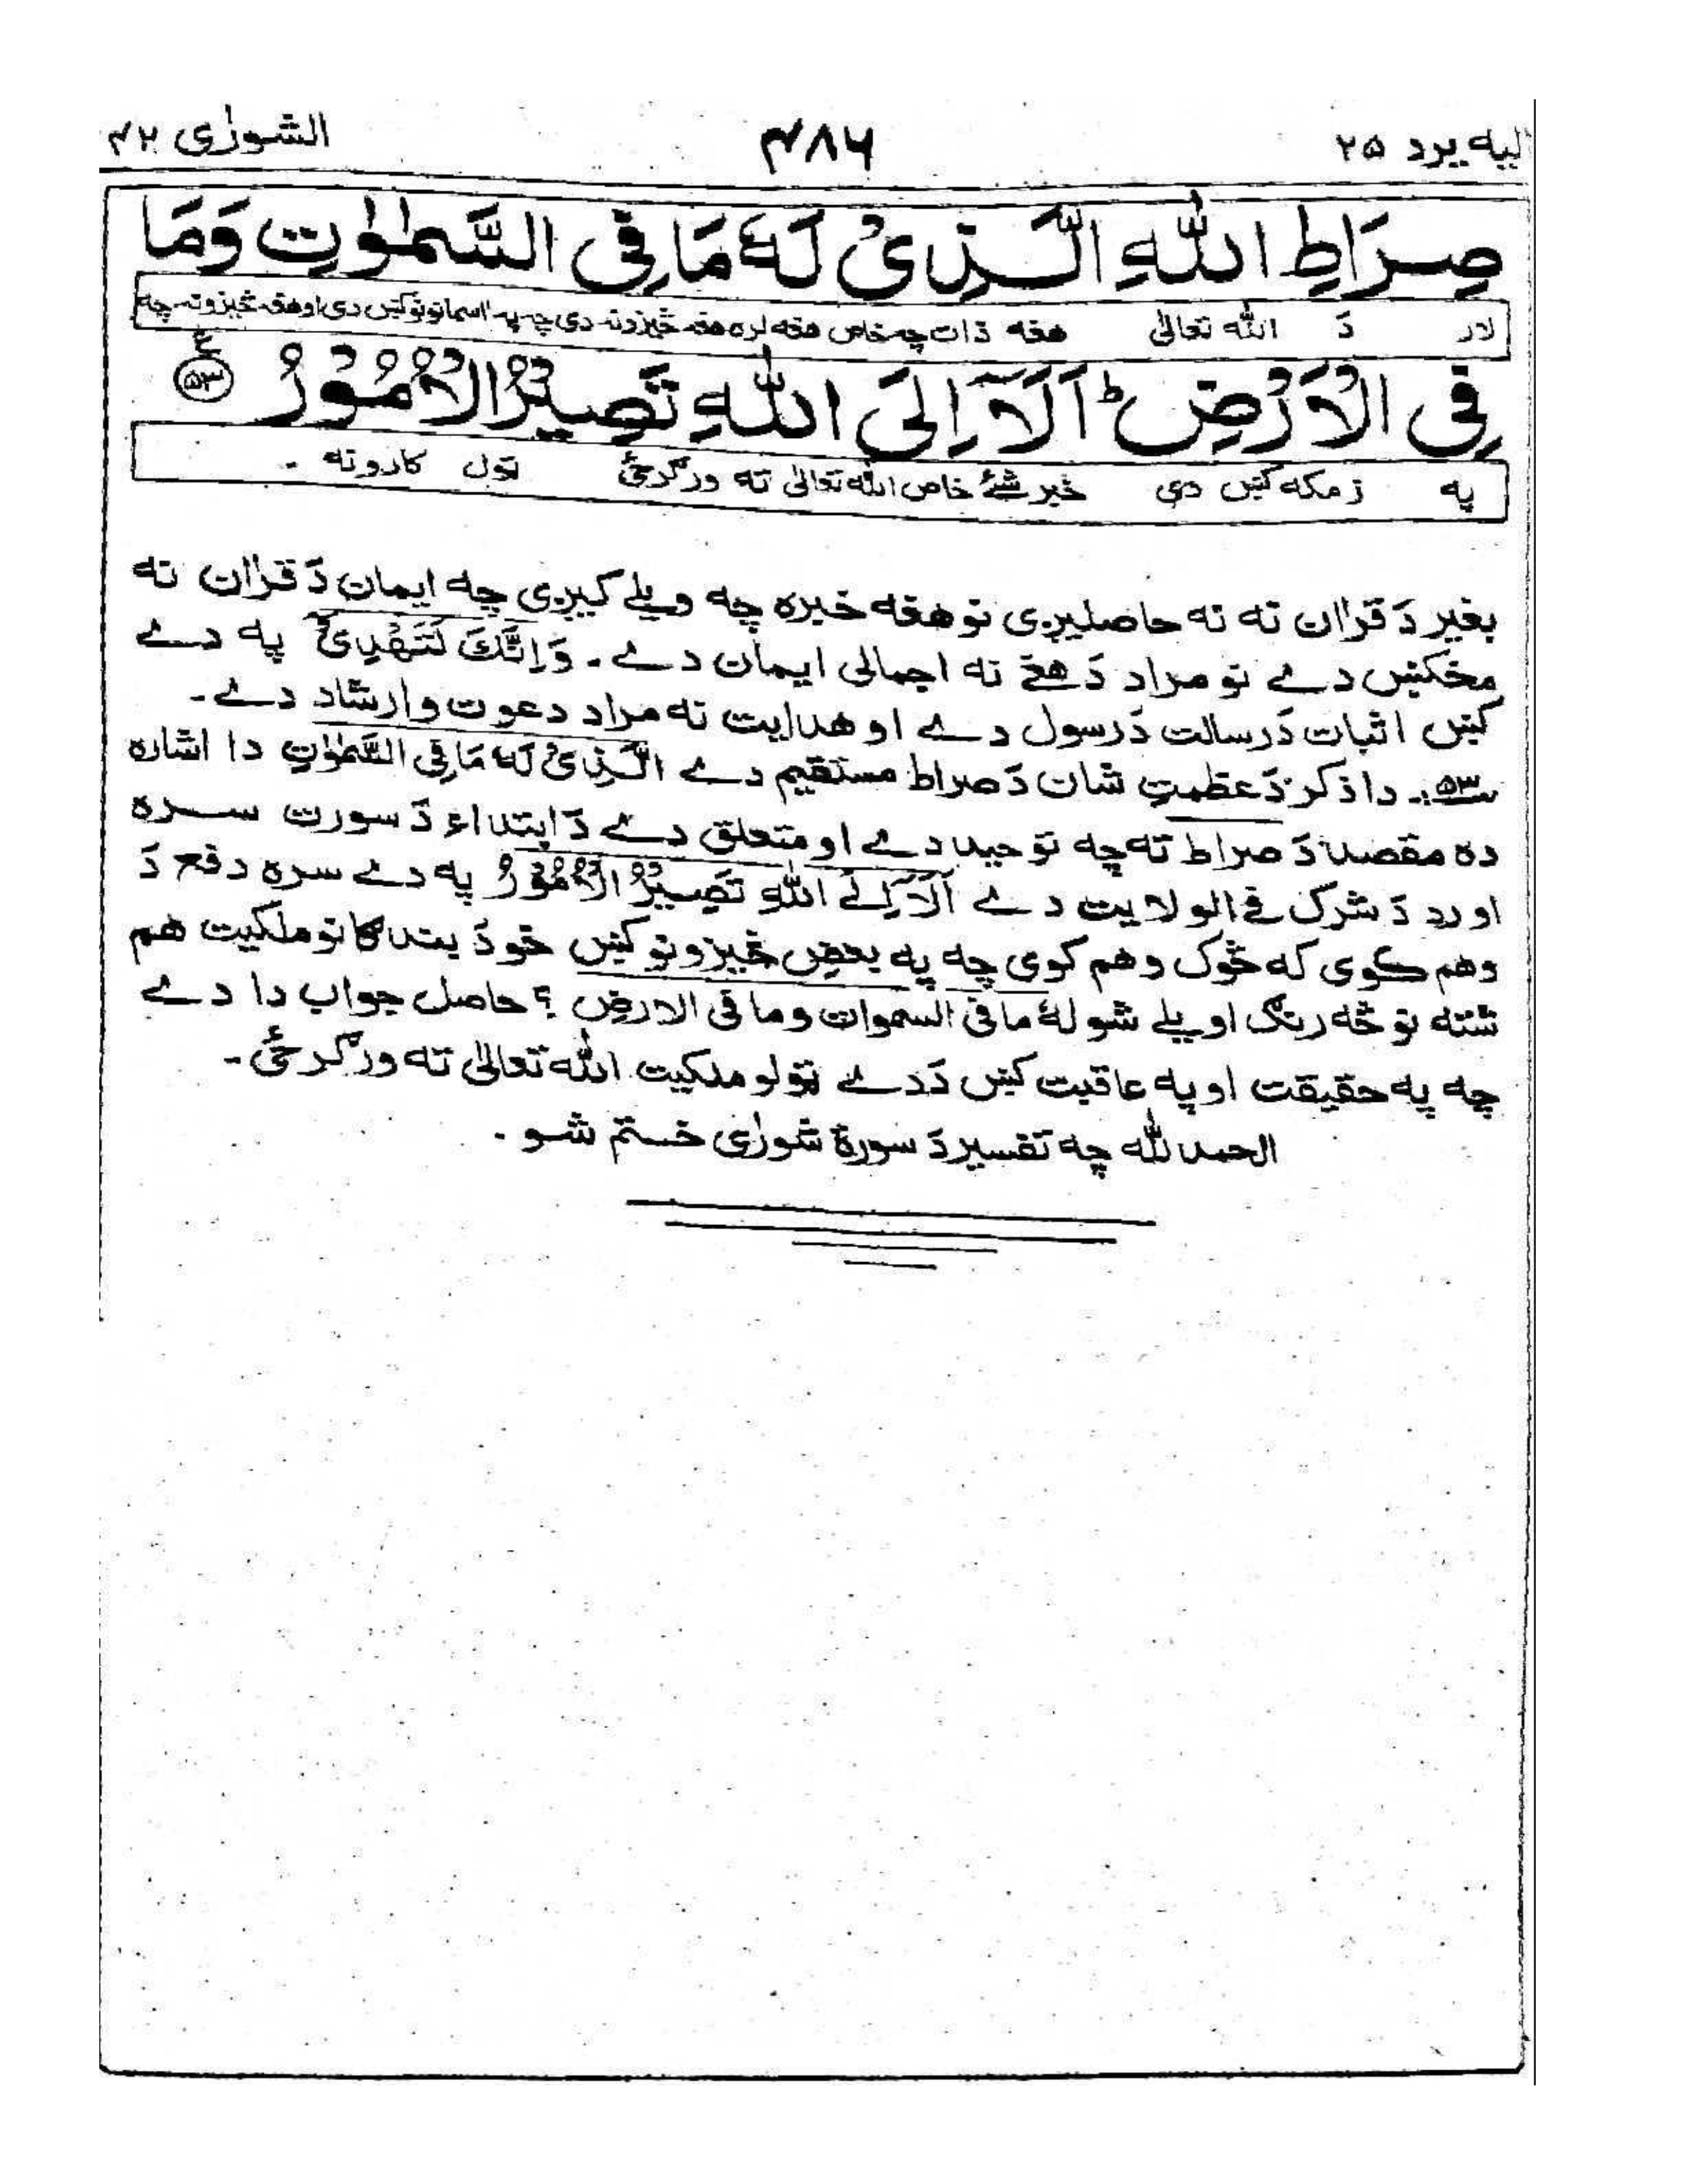 الیه یرد ۲۵ ۴۸۶ الشورٰی ۴۲
صِرَاطِ اللّٰهِ الَّذِیْ لَهٗ مَا فِی السَّمٰوٰتِ وَمَا
لار دَ الله تعالیٰ هغه ذات چه خاص هغه لره هغه څیزونه دی چه په اسمانونو کښ دی او هغه څیزونه چه
فِی الْاَرْضِ ؕ اَلَاۤ اِلَی اللّٰهِ تَصِیْرُ الْاُمُوْرُ ﴿۵۳﴾ ع
په زمکه کښ دی خبر شئ خاص الله تعالیٰ ته ورګرځی ټول کارونه -
بغیر دَ قراٰن نه نه حاصلیږی نو هغه خبره چه ویلے کیږی چه ایمان دَ قراٰن نه
مخکښ دے نو مراد دَ هغے نه اجمالی ایمان دے - وَاِنَّكَ لَتَهْدِیْ په دے
کښ اثبات دَ رسالت دَ رسول دے او هدایت نه مراد دعوت وارشاد دے -
۵۳؎ :- دا ذکر دَ عظمتِ شان دَ صراط مستقیم دے الَّذِیْ لَهٗ مَا فِی السَّمٰوٰتِ دا اشاره
ده مقصد دَ صراط ته چه توحید دے او متعلق دے دَ ابتداء دَ سورت سره
او رد دَ شرک فی الولایت دے اَلَاۤ اِلَی اللّٰهِ تَصِیْرُ الْاُمُوْرُ په دے سره دفع دَ
وهم کوی که څوک وهم کوی چه په بعض څیزونو کښ خو دَ بندګانو ملکیت هم
شته نو څه رنګ اویلے شو لهٗ ما فی السموات وما فی الارض ؟ حاصل جواب دا دے
چه په حقیقت او په عاقبت کښ دَ دے ټولو ملکیت الله تعالیٰ ته ورګرځی -
الحمد لله چه تفسیر دَ سورة شورٰی ختم شو -